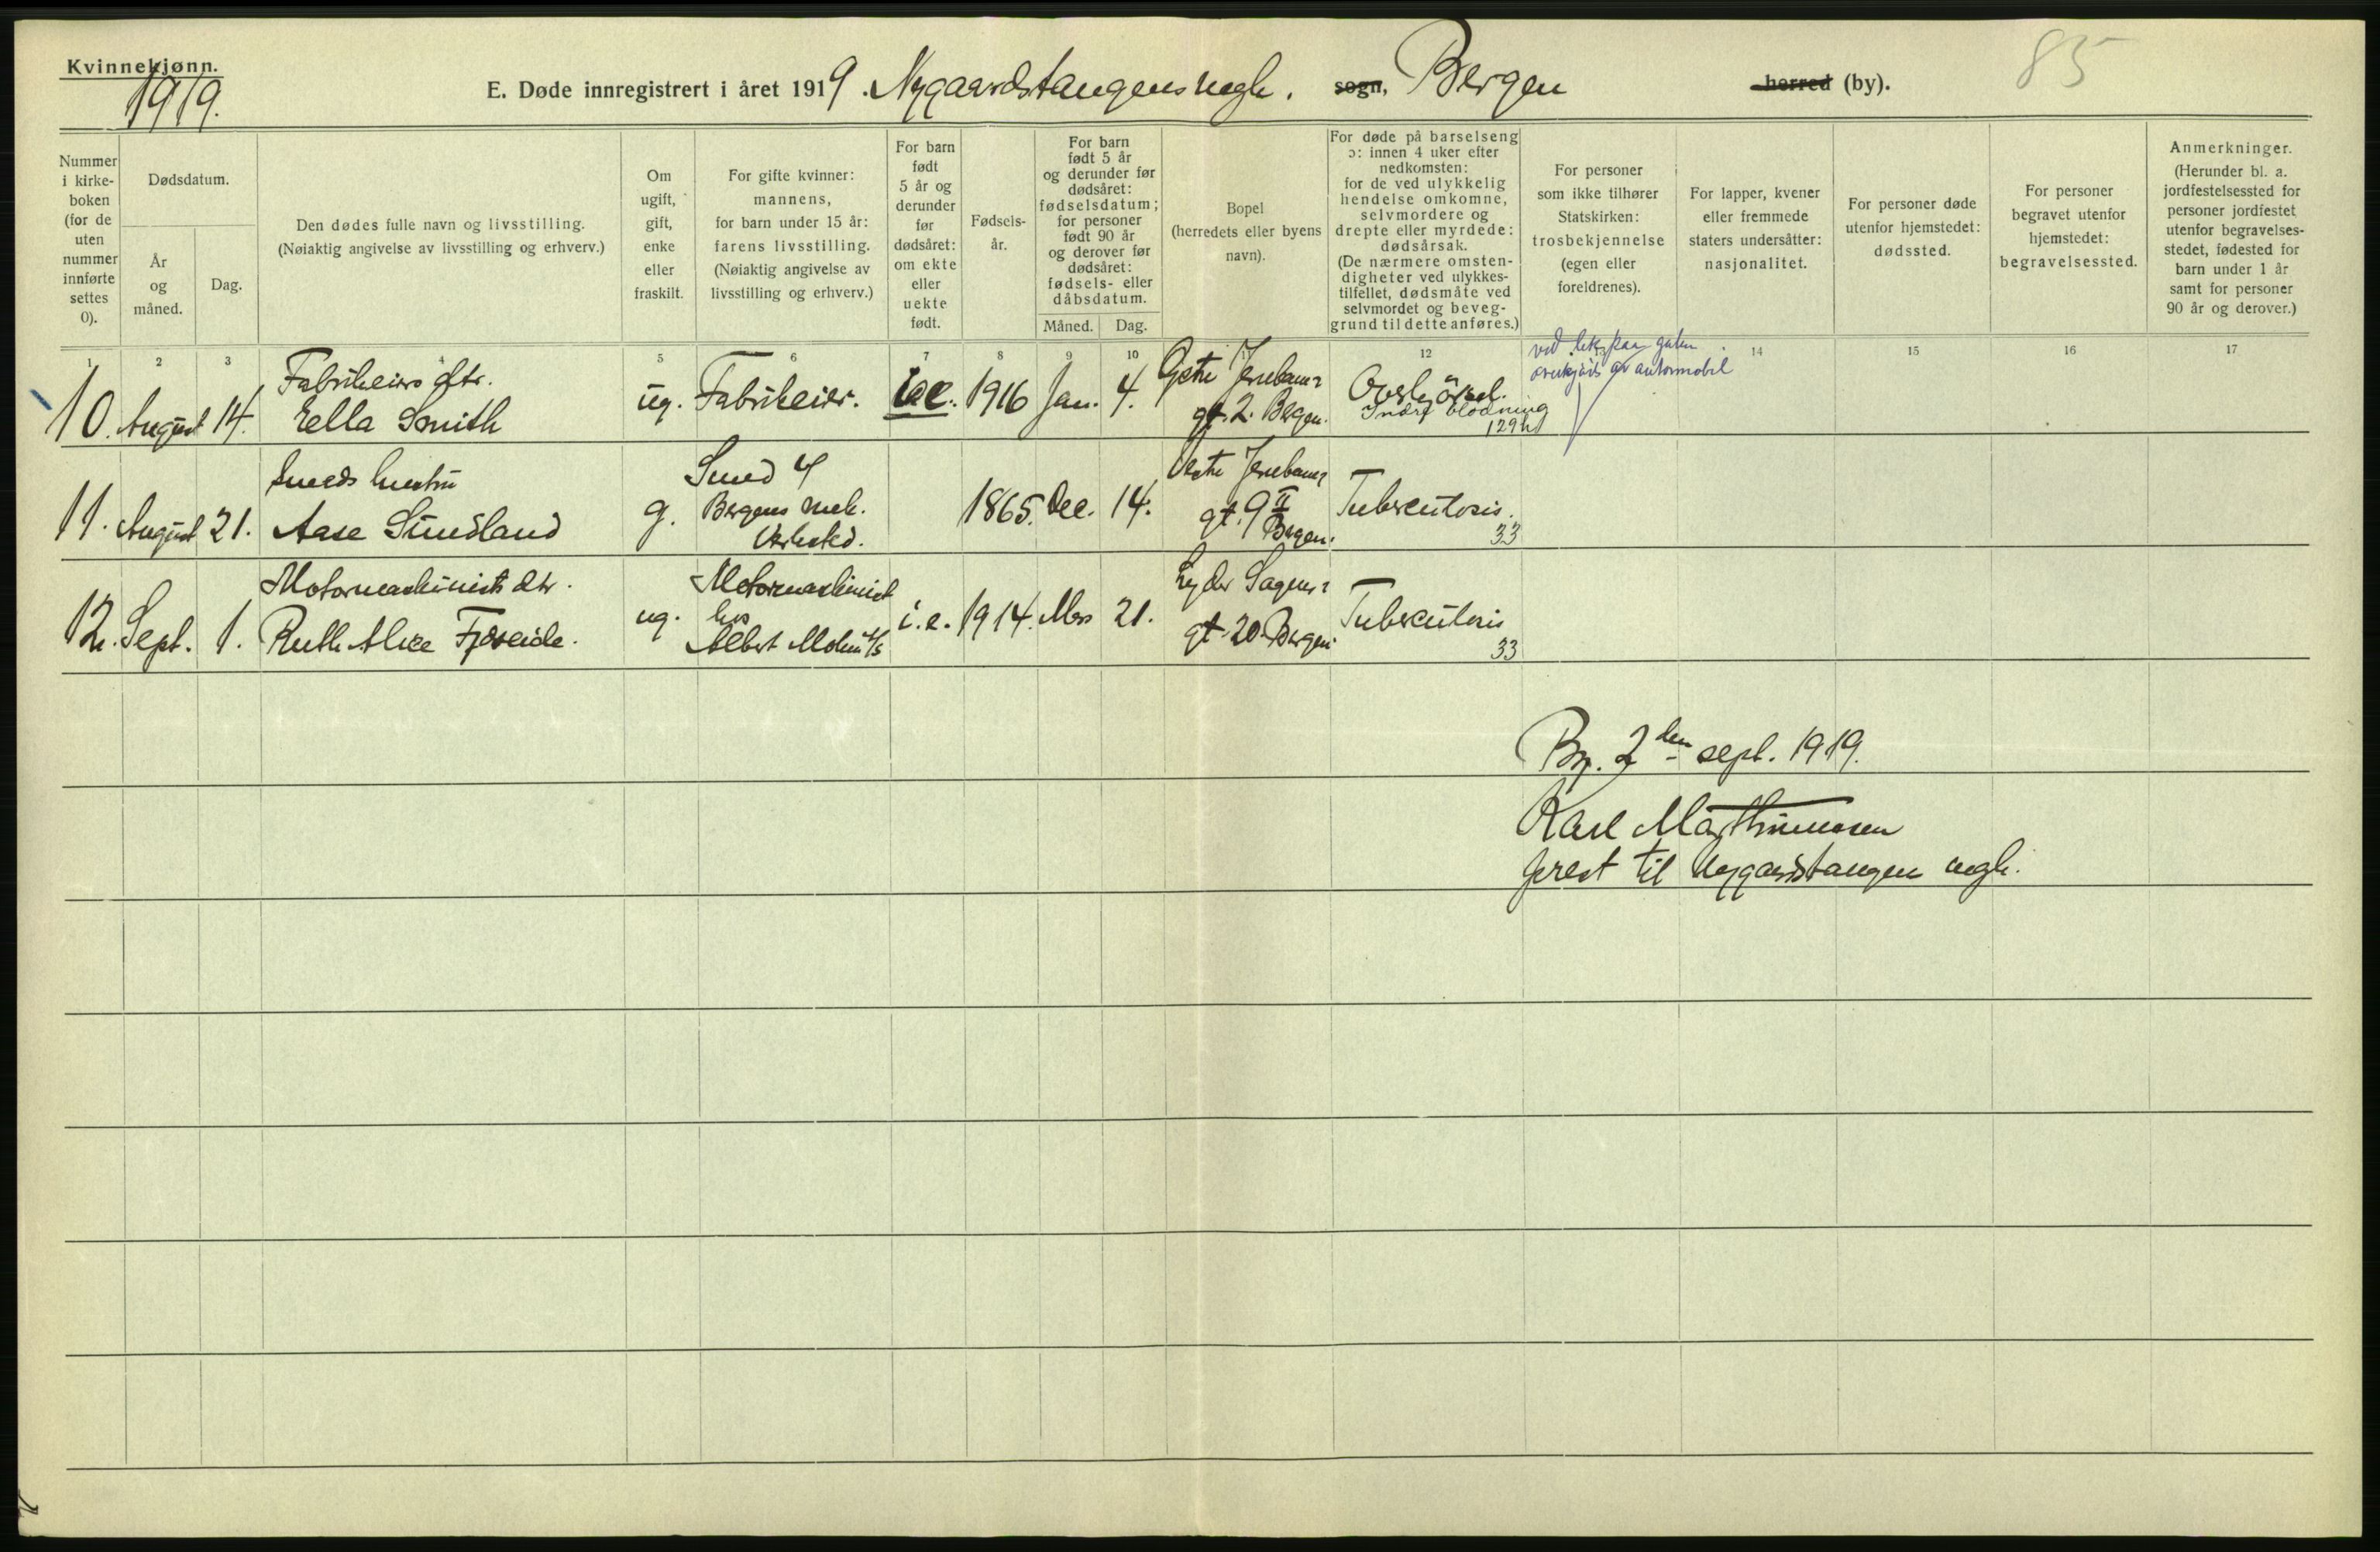 Kvinnekjønn.
1919.
E. Døde innregistrert i året 1919. Nygaardstangens mgh. sogn, Bergen herred (by).
85
Nummer
i kirke-
boken
(for de
uten
nummer
innførte
settes
0).
Dødsdatum.
År
og
måned.
Dag.
Den dødes fulle navn og livsstilling.
(Nøiaktig angivelse av livsstilling og erhverv.)
Om
ugift,
gift,
enke
eller
fraskilt.
For gifte kvinner:
mannens,
for barn under 15 år:
farens livsstilling.
(Nøiaktig angivelse av
livsstilling og erhverv.)
For barn
født
5 år og
derunder
før
dødsåret:
om ekte
eller
uekte
født.
Fødsels-
år.
For barn
født 5 år
og derunder før
dødsåret:
fødselsdatum;
for personer
født 90 år
og derover før
dødsåret:
fødsels- eller
dåbsdatum.
Måned.
Dag.
Bopel
(herredets eller byens
navn).
For døde på barselseng
ɔ: innen 4 uker efter
nedkomsten:
for de ved ulykkelig
hendelse omkomne,
selvmordere og
drepte eller myrdede:
dødsårsak.
(De nærmere omsten-
digheter ved ulykkes-
tilfellet, dødsmåte ved
selvmordet og beveg-
grund til dette anføres.)
For personer
som ikke tilhører
Statskirken:
trosbekjennelse
(egen eller
foreldrenes).
For lapper, kvener
eller fremmede
staters undersåtter:
nasjonalitet.
For personer døde
utenfor hjemstedet:
dødssted.
For personer
begravet utenfor
hjemstedet:
begravelsessted.
Anmerkninger.
(Herunder bl. a.
jordfestelsessted for
personer jordfestet
utenfor begravelses-
stedet, fødested for
barn under 1 år
samt for personer
90 år og derover.)
1 2 3 4 5 6 7 8 9 10 11 12 13 14 15 16 17
10. August 14.
Fabrikeiers dtr.
Ella Smith
ug. Fabrikeier. 1916 Jan. 4.
Jernbane-
gt. 2. Bergen.
Overkjørsel.
Indre blødning
129h
ved lek paa gaten
overkjørt av automobil
11. August 21.
Smeds hustru
Aase Sundland
g.
Smed v/
Bergens mek.
Verksted.
1865. Dec. 14.
Vestre Jernbane-
gt. 9 II
Bergen.
Tuberculosis.
33
12. Sept. 1.
Motormaskinists dtr.
Ruth Alice Fjæreide.
ug.
Motormaskinist
hos
Albert Mohn A/S
i.e. 1914. Mars 21.
Lyder Sagens-
gt. 20. Bergen.
Tuberculosis
33
Bg. 2den sept. 1919.
Karl Marthinussen
prest til Nygaardstangen mgh.